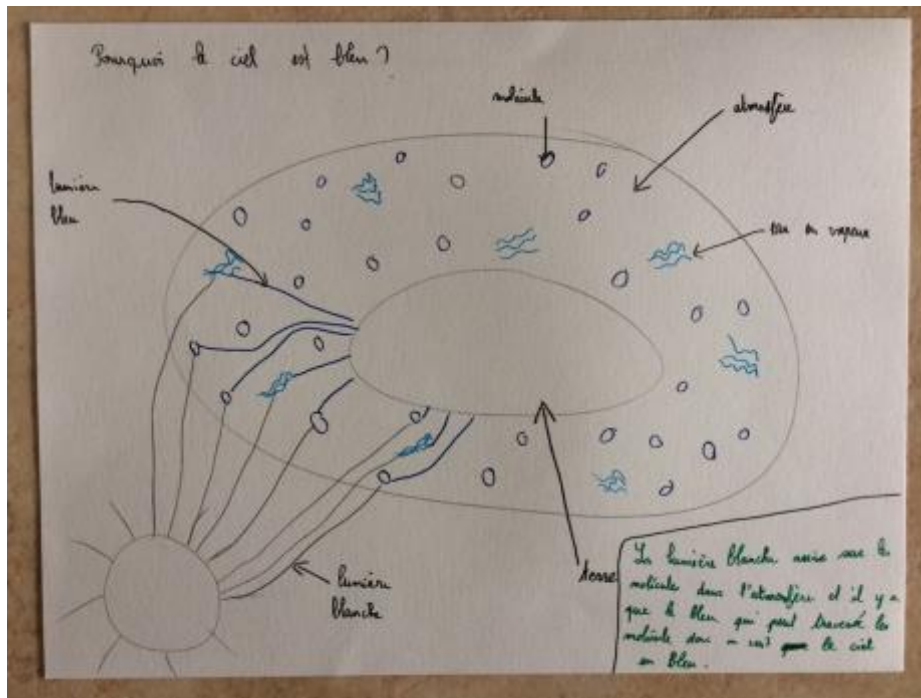 Pourquoi le ciel est bleu ?
molécule
atmosfère
lumière
bleu
eau en vapeur
lumière
blanche
terre
La lumière blanche arrive sur le
molécule dans l'atmosfère et il y a
que le bleu qui peut traversé les
molécule donc on voit le ciel
en bleu.